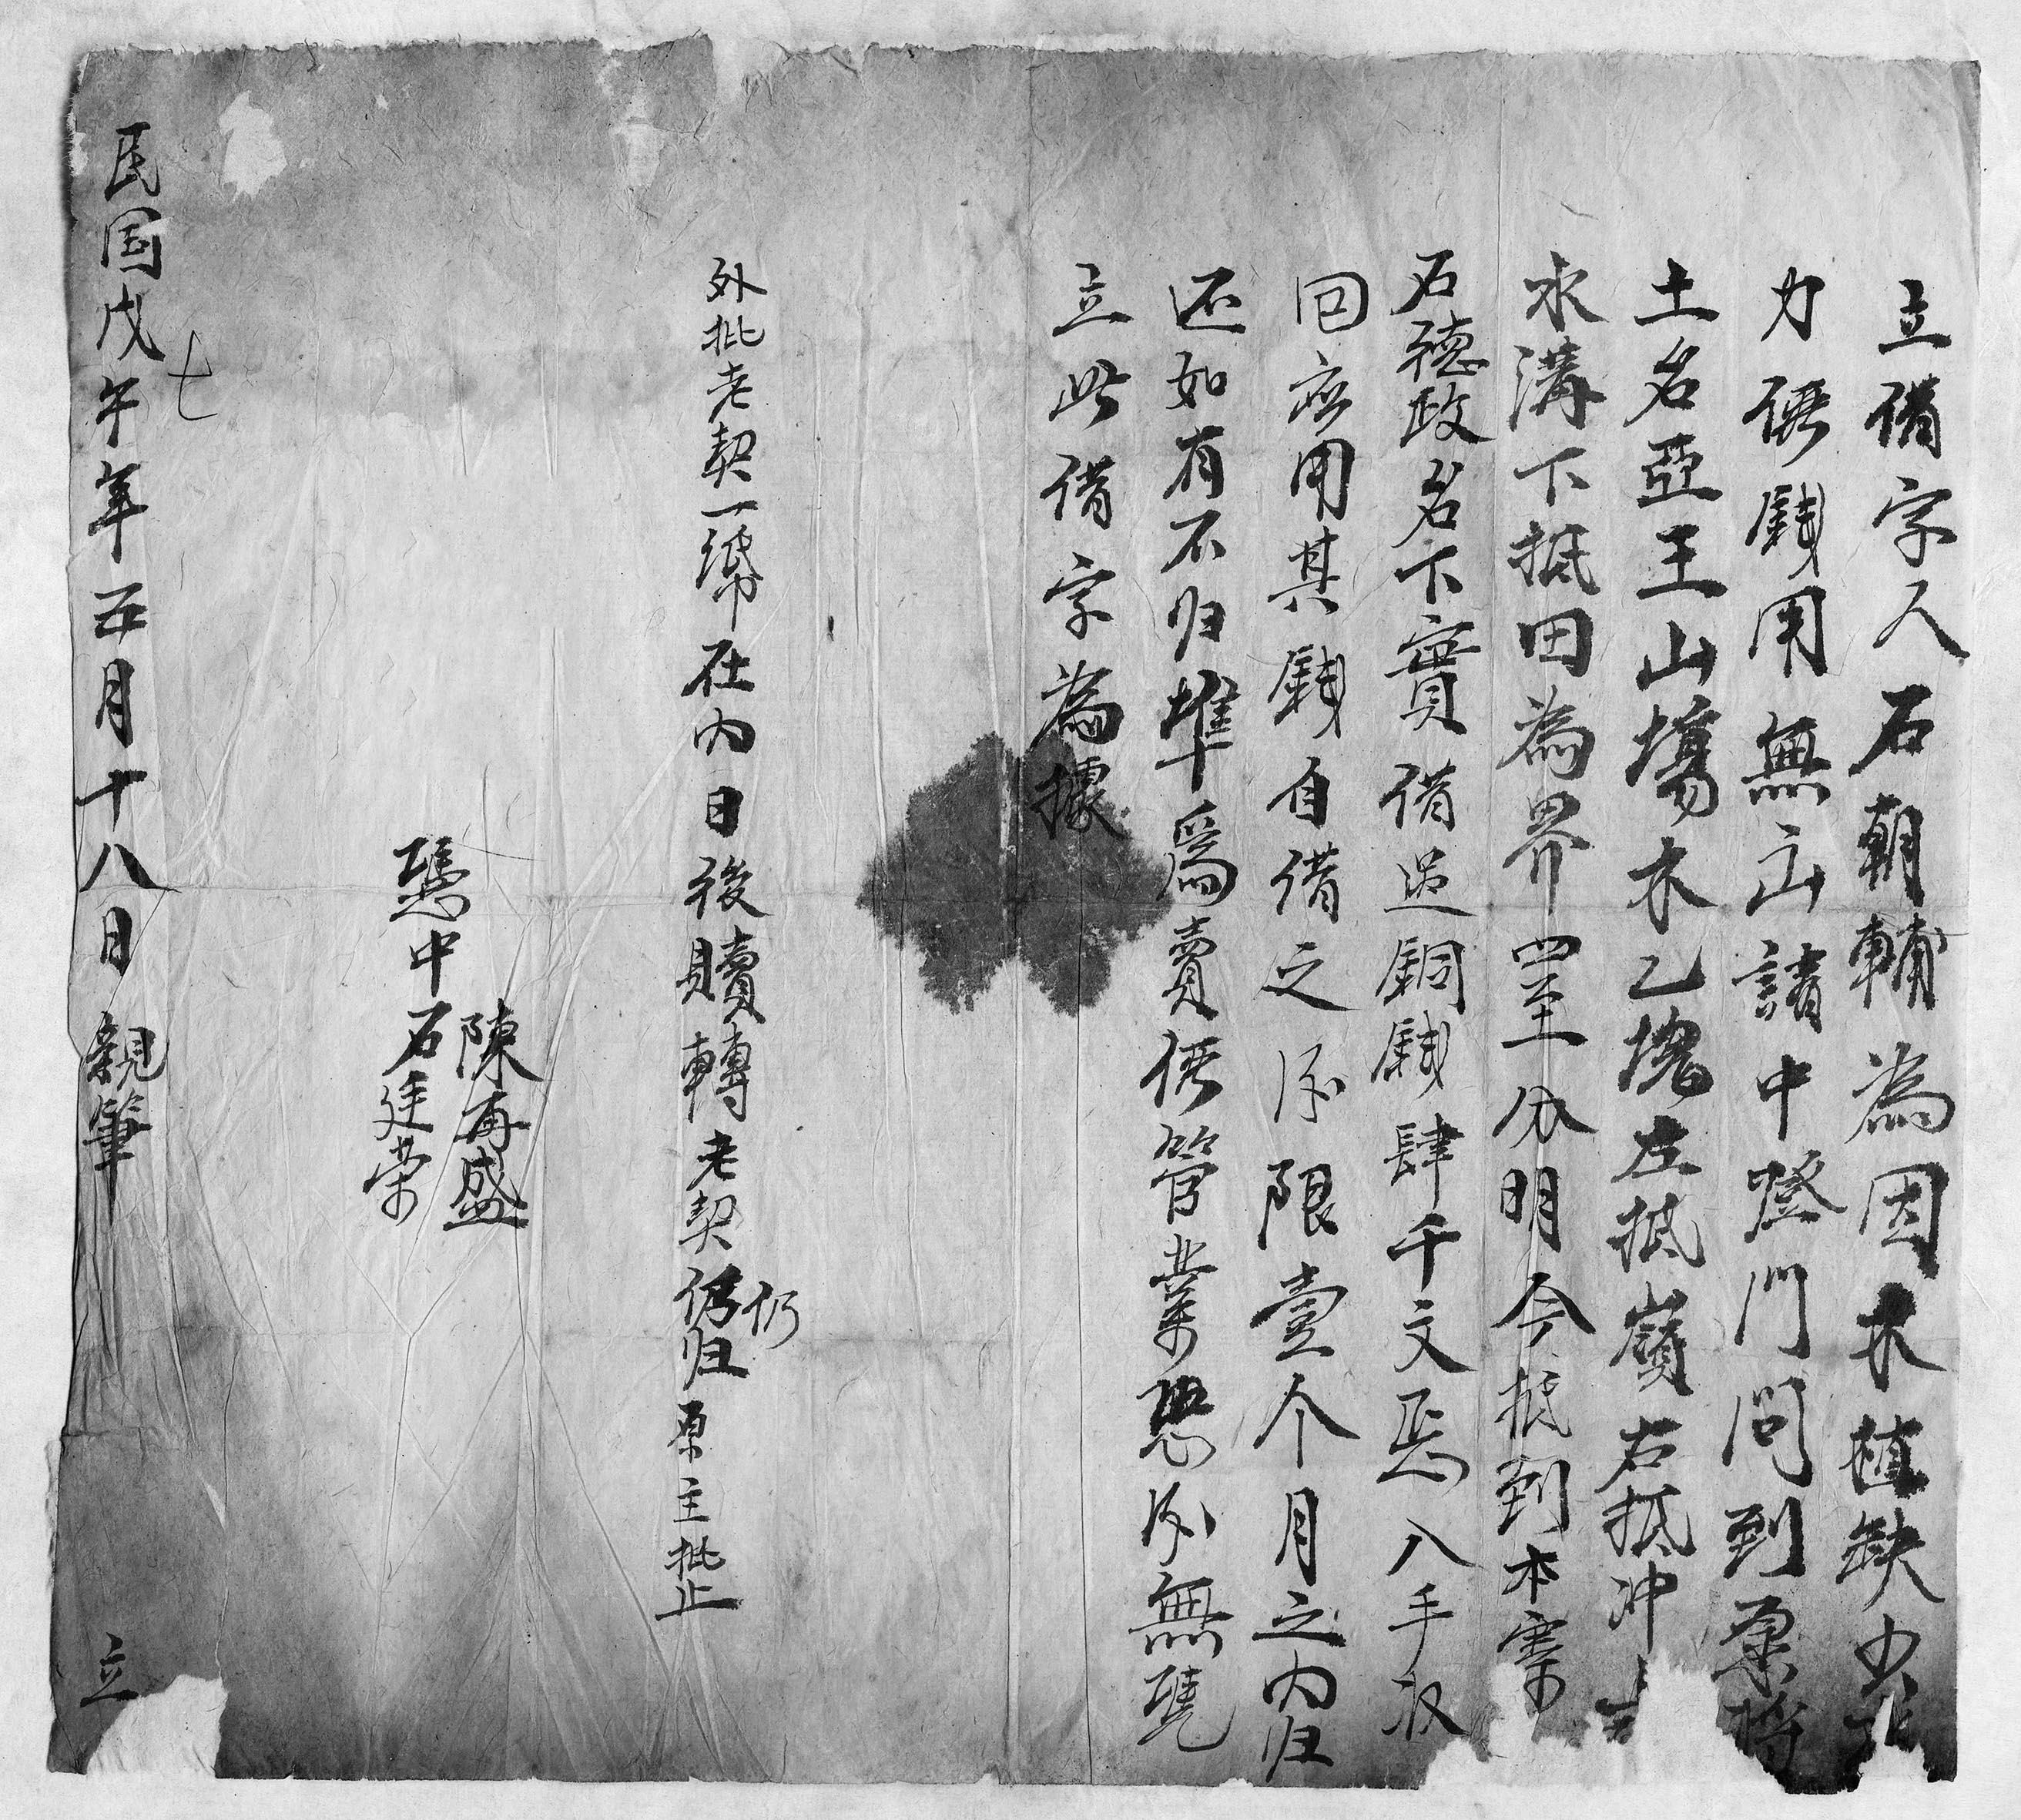 立借字人石朝輔為因木植缺少
力俻錢用無山請中登門問到原將
土名亞王山塲木乙塊左抵嶺右抵冲
水溝下抵田為界四至分明今抵到本寨
石德政名下實借過銅錢肆千文馬入手收
回应用其錢自借之后限壹个月之内归
还如有不归準爲賣俻管業恐后無凴
立此借字為據
外批老契一紙在内日後贖轉老契仍归原主批止
仍
陳再盛
凴中石廷荣
七
民国戊午年五月十八日親筆立